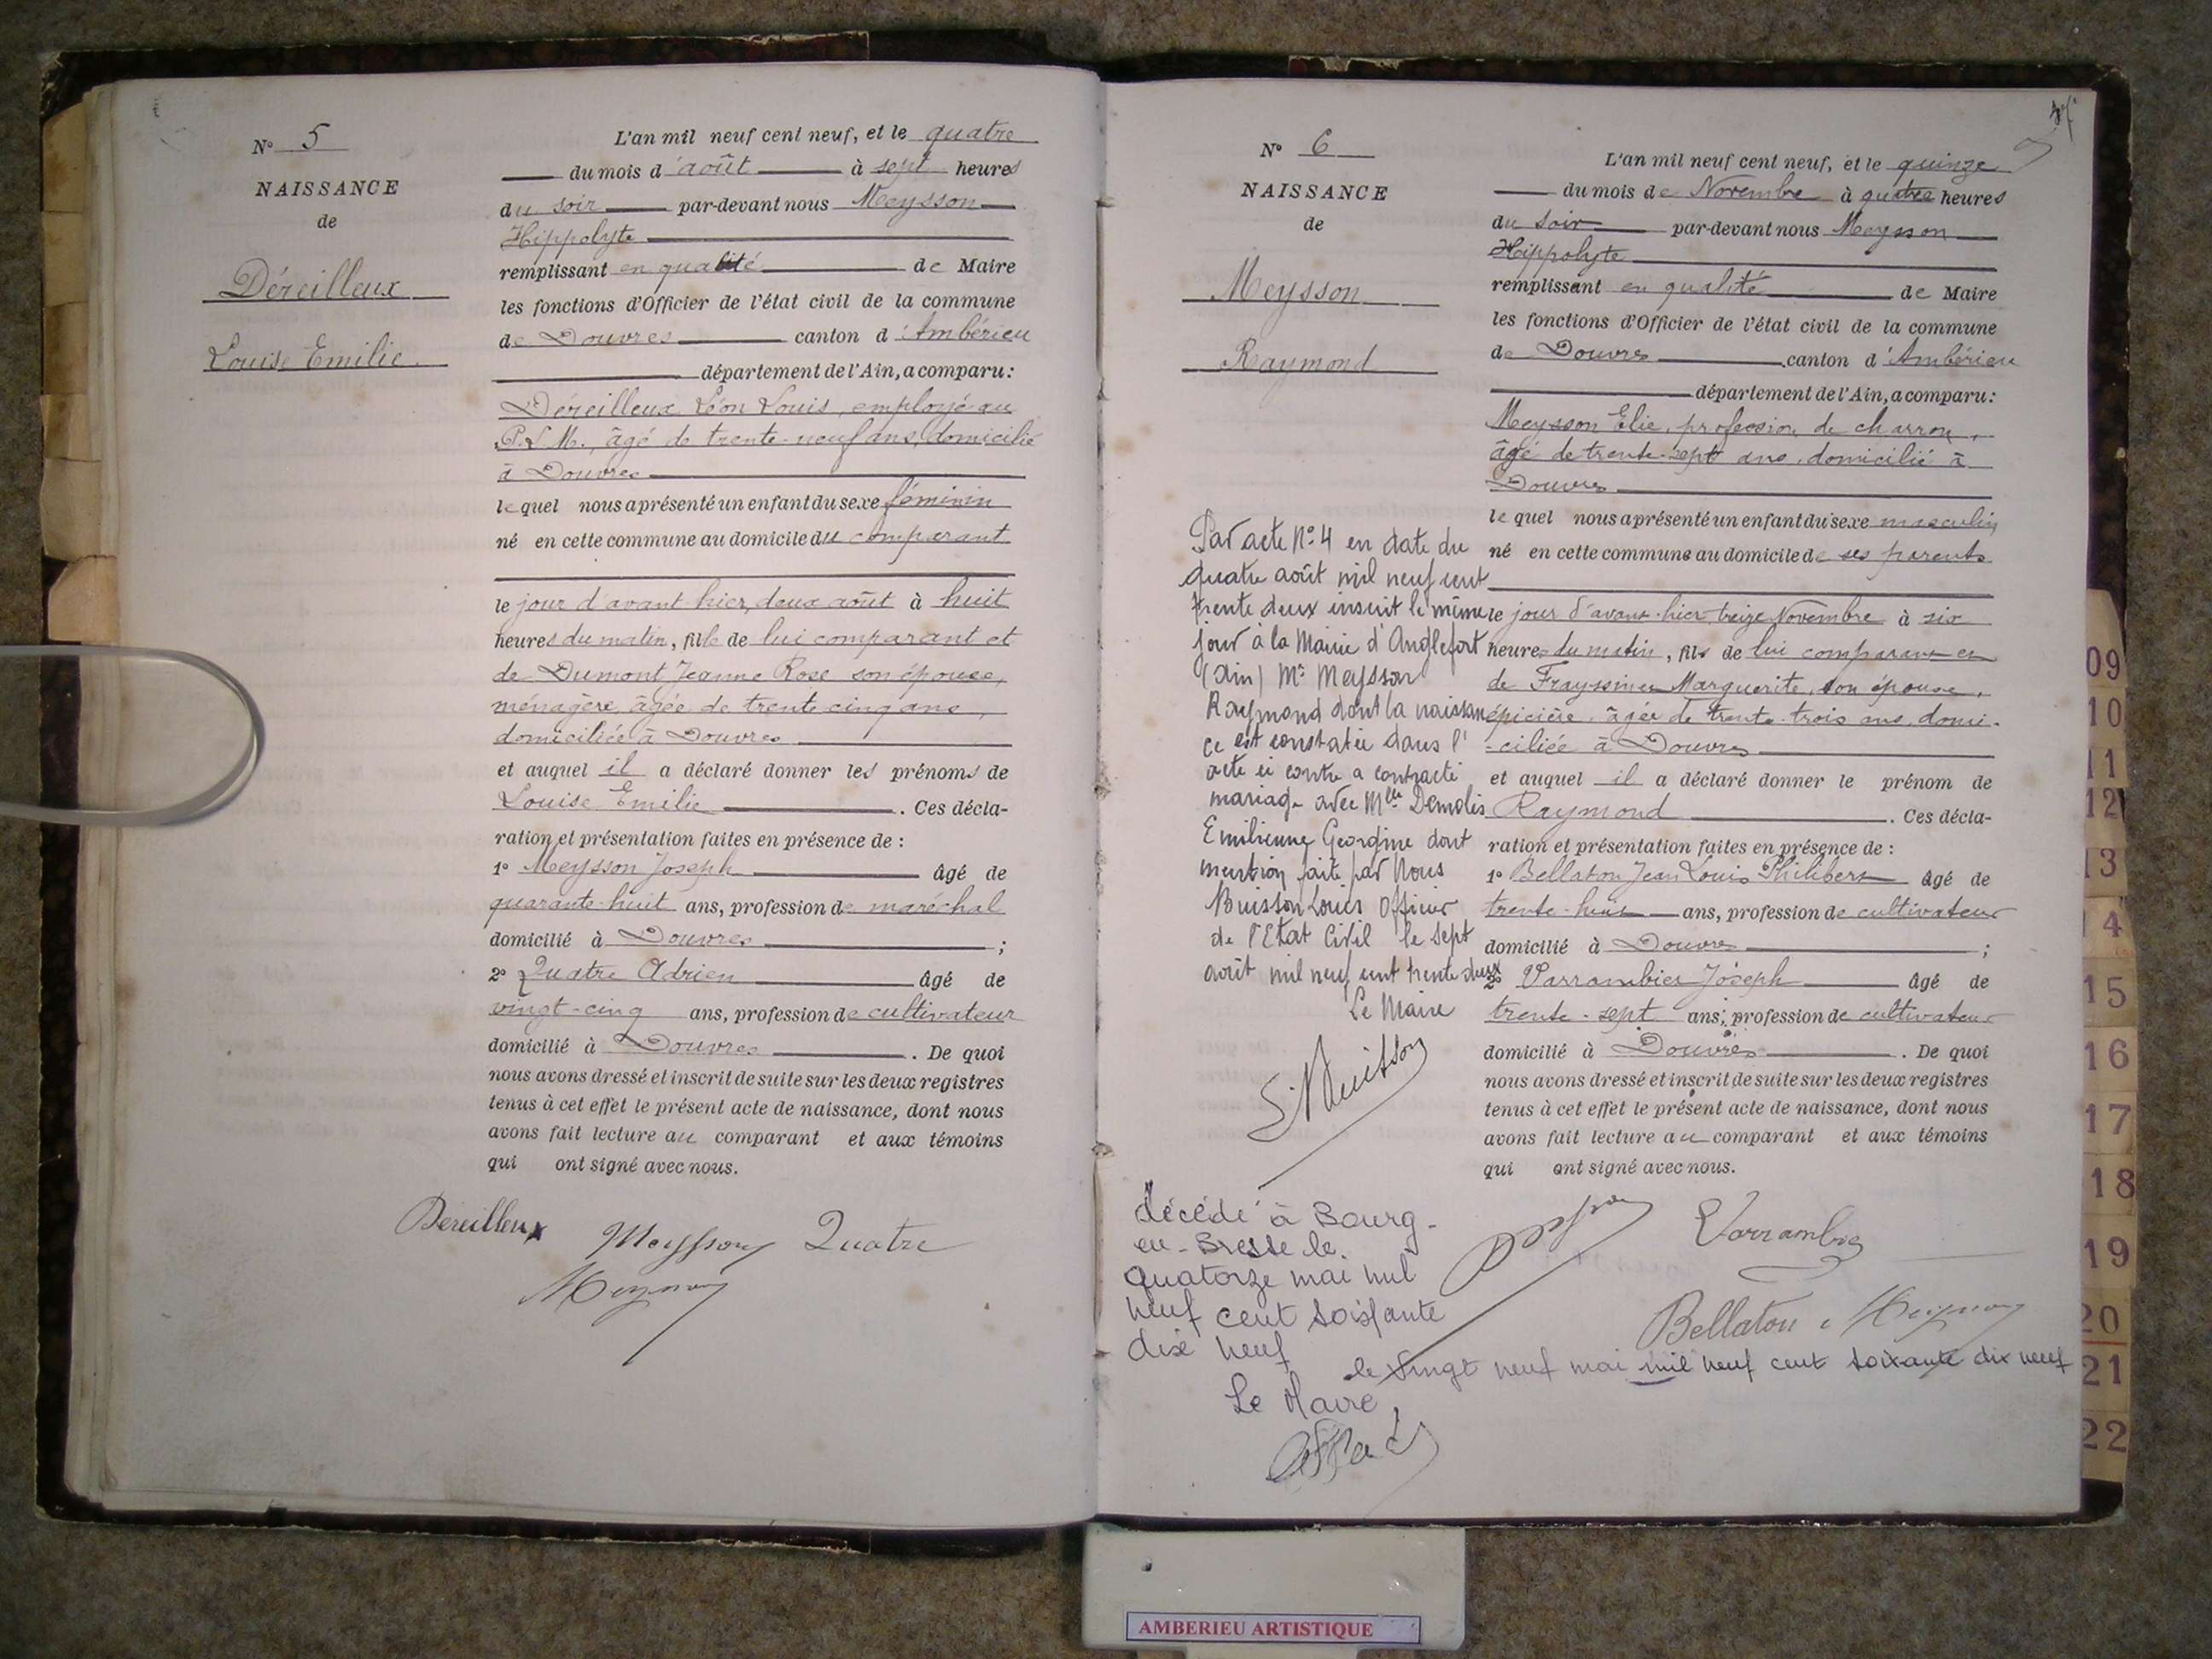 N° 5
NAISSANCE
de
Déreilleux
Louise Emilie
L'an mil neuf cent neuf, et le quatre
du mois d'août à sept heures
du soir par-devant nous Meysson
Hippolyte
remplissant en qualité de Maire
les fonctions d'Officier de l'état civil de la commune
de Douvres canton d'Ambérieu
département de l'Ain, a comparu :
Déreilleux Léon Louis, employé au
P.L.M., âgé de trente-neuf ans, domicilié
à Douvres
lequel nous a présenté un enfant du sexe féminin
né en cette commune au domicile du comparant
le jour d'avant hier, deux août à huit
heures du matin, fille de lui comparant et
de Dumont Jeanne Rose son épouse,
ménagère, âgée de trente cinq ans,
domiciliée à Douvres
et auquel il a déclaré donner les prénoms de
Louise Emilie . Ces décla-
ration et présentation faites en présence de :
1° Meysson Joseph âgé de
quarante-huit ans, profession de maréchal
domicilié à Douvres ;
2° Quatre Adrien âgé de
vingt-cinq ans, profession de cultivateur
domicilié à Douvres . De quoi
nous avons dressé et inscrit de suite sur les deux registres
tenus à cet effet le présent acte de naissance, dont nous
avons fait lecture au comparant et aux témoins
qui ont signé avec nous.
Dereilleux Meysson Quatre
Meysson
N° 6
NAISSANCE
de
Meysson
Raymond
L'an mil neuf cent neuf, et le quinze
du mois de Novembre à quatre heures
du soir par-devant nous Meysson
Hippolyte
remplissant en qualité de Maire
les fonctions d'Officier de l'état civil de la commune
de Douvres canton d'Ambérieu
département de l'Ain, a comparu :
Meysson Elie, profession de charron,
âgé de trente-sept ans, domicilié à
Douvres
lequel nous a présenté un enfant du sexe masculin
né en cette commune au domicile de ses parents
le jour d'avant-hier, treize Novembre à six
heures du matin, fils de lui comparant et
de Frayssines Marguerite, son épouse,
épicière, âgée de trente-trois ans, domi-
-ciliée à Douvres
et auquel il a déclaré donner le prénom de
Raymond . Ces décla-
ration et présentation faites en présence de :
1° Bellaton Jean Louis Philibert âgé de
trente-huit ans, profession de cultivateur
domicilié à Douvres ;
2° Varrambier Joseph âgé de
trente-sept ans, profession de cultivateur
domicilié à Douvres . De quoi
nous avons dressé et inscrit de suite sur les deux registres
tenus à cet effet le présent acte de naissance, dont nous
avons fait lecture au comparant et aux témoins
qui ont signé avec nous.
Bellaton Meysson
Par acte N° 4 en date du
quatre août mil neuf cent
trente deux inscrit le même
jour à la Mairie d'Anglefort
(Ain) Mr Meysson
Raymond dont la naissan
ce est constatée dans l'
acte ci contre a contracté
mariage avec Mlle Demolis
Emilienne Georgine dont
mention faite par Nous
Buisson Louis Officier
de l'Etat Civil le sept
août mil neuf cent trente deux
Le Maire
L. Buisson
décédé à Bourg-
en-Bresse le
quatorze mai mil
neuf cent soixante
dix neuf
le vingt neuf mai mil neuf cent soixante dix neuf
Le Maire
09
10
11
12
13
14
15
16
17
18
19
20
21
22
AMBERIEU ARTISTIQUE